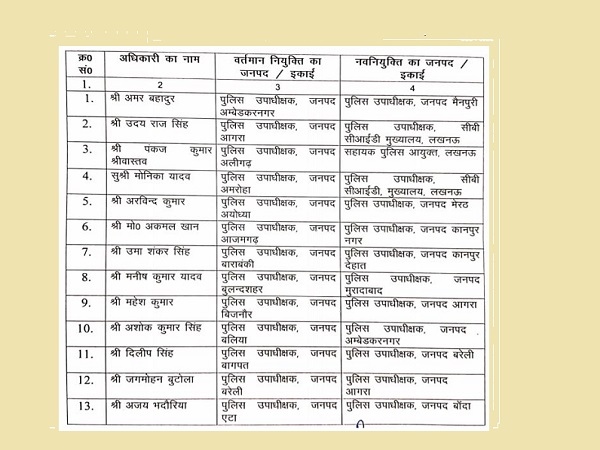 क्र० अधिकारी का नाम वर्तमान नियुक्ति का नवनियुक्ति का जनपद /
सं० जनपद / इकाई इकाई
1. 2 3 4
1. श्री अमर बहादुर पुलिस उपाधीक्षक, जनपद पुलिस उपाधीक्षक, जनपद मैनपुरी
अम्बेडकरनगर
2. श्री उदय राज सिंह पुलिस उपाधीक्षक, जनपद पुलिस उपाधीक्षक, सीबी
आगरा सीआईडी मुख्यालय, लखनऊ
3. श्री पंकज कुमार पुलिस उपाधीक्षक, जनपद सहायक पुलिस आयुक्त, लखनऊ
श्रीवास्तव अलीगढ़
4. सुश्री मोनिका यादव पुलिस उपाधीक्षक, जनपद पुलिस उपाधीक्षक, सीबी
अमरोहा सीआईडी, मुख्यालय, लखनऊ
5. श्री अरविन्द कुमार पुलिस उपाधीक्षक, जनपद पुलिस उपाधीक्षक, जनपद मेरठ
अयोध्या
6. श्री मो० अकमल खान पुलिस उपाधीक्षक, जनपद पुलिस उपाधीक्षक, जनपद कानपुर
आजमगढ़ नगर
7. श्री उमा शंकर सिंह पुलिस उपाधीक्षक, जनपद पुलिस उपाधीक्षक, जनपद कानपुर
बाराबंकी देहात
8. श्री मनीष कुमार यादव पुलिस उपाधीक्षक, जनपद पुलिस उपाधीक्षक, जनपद
बुलन्दशहर मुरादाबाद
9. श्री महेश कुमार पुलिस उपाधीक्षक, जनपद पुलिस उपाधीक्षक, जनपद आगरा
बिजनौर
10. श्री अशोक कुमार सिंह पुलिस उपाधीक्षक, जनपद पुलिस उपाधीक्षक, जनपद
बलिया अम्बेडकरनगर
11. श्री दिलीप सिंह पुलिस उपाधीक्षक, जनपद पुलिस उपाधीक्षक, जनपद बरेली
बागपत
12. श्री जगमोहन बुटोला पुलिस उपाधीक्षक, जनपद पुलिस उपाधीक्षक, जनपद
बरेली आगरा
13. श्री अजय भदौरिया पुलिस उपाधीक्षक, जनपद पुलिस उपाधीक्षक, जनपद बाँदा
एटा